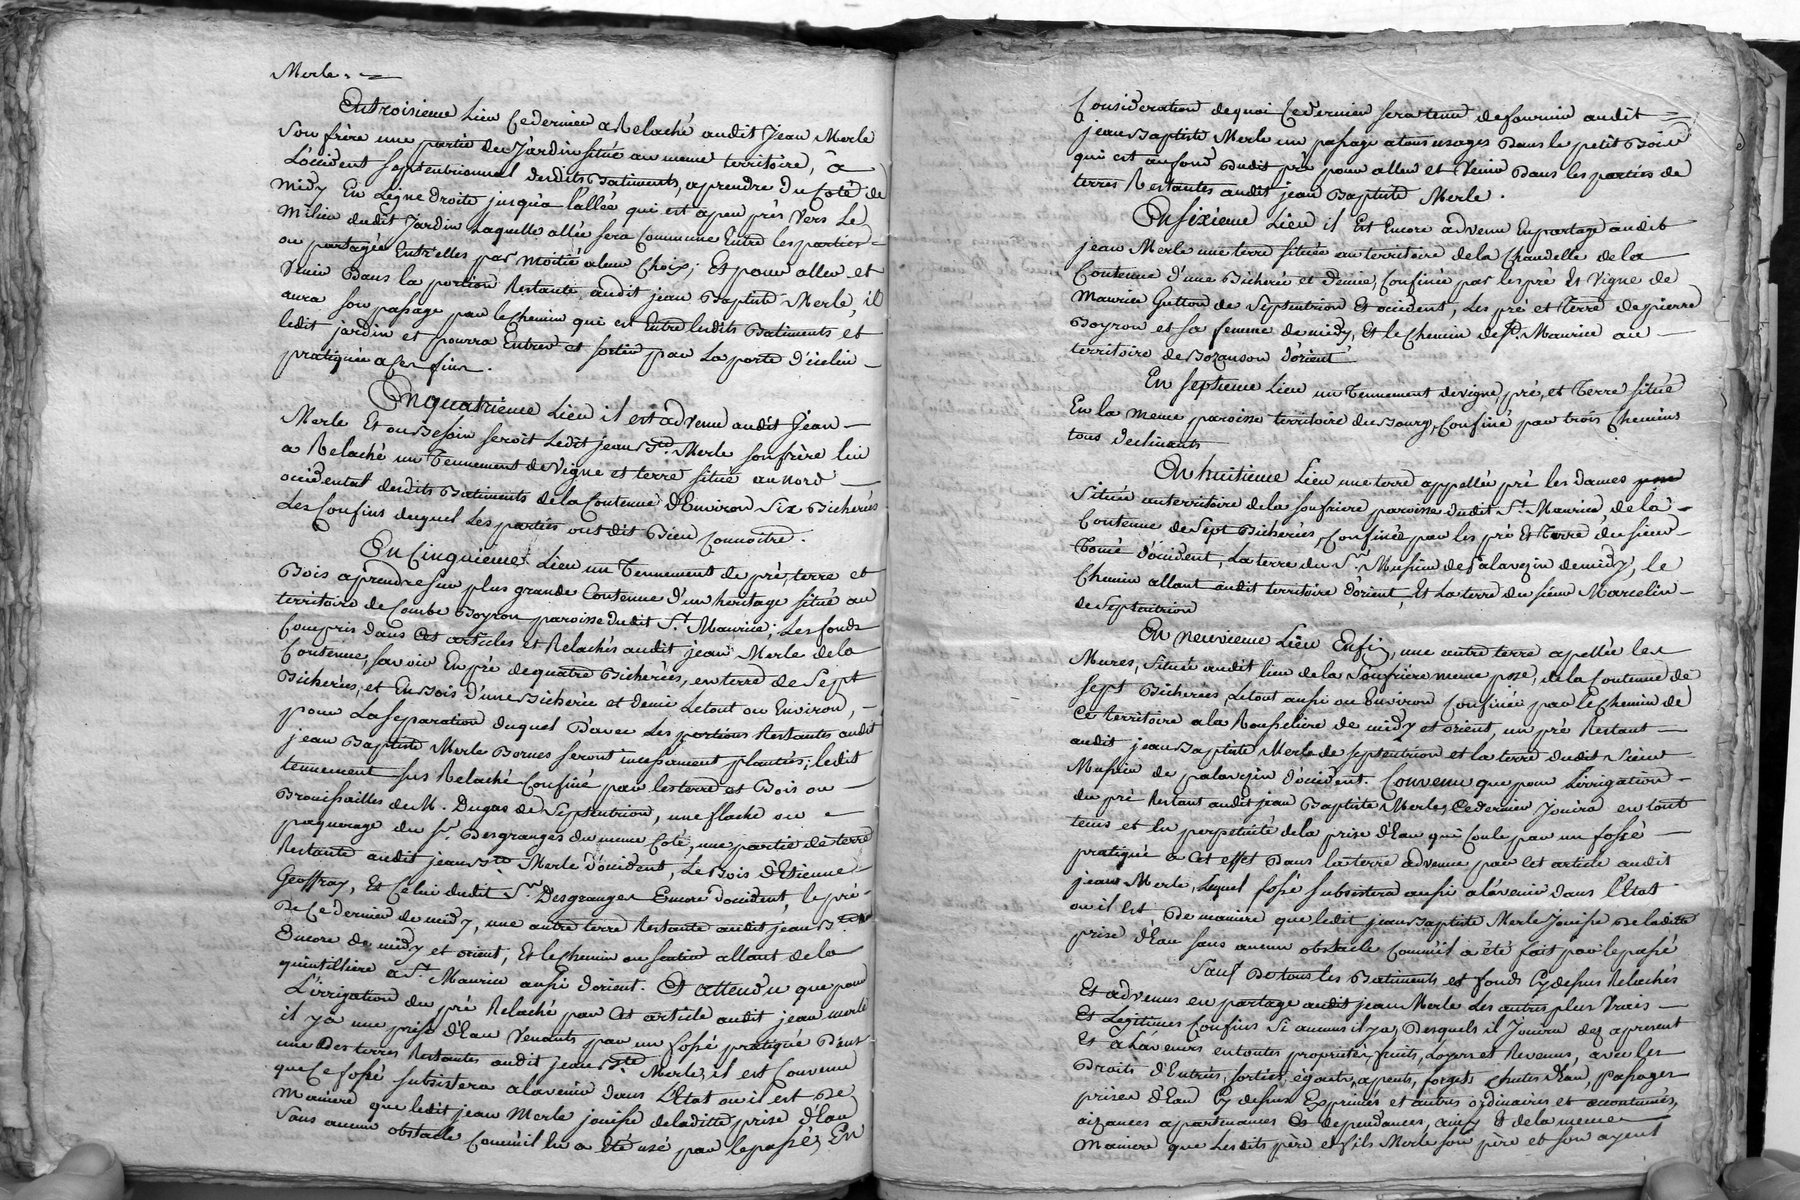 Merle. =
Entroisieme Lieu Cedernier a Relaché audit Jean Merle
Son frère une partie du Jardin situé au meme territoire, à
L'occident septentrional desdits Batiments, aprendre du Coté de
midy En Ligne droite jusqu'a l'allée qui est apeu près vers Le
milieu dudit Jardin Laquelle allée sera Commune Entre les parties =
ou partagée Entr'elles par moitié aleur Choix; Et pour aller et
venir Dans la portion Restante audit jean Baptiste Merle, il
aura son passage par le chemin qui est Entre lesdits Batiments et
ledit jardin et pourra Entrer et sortir par La porte d'icelui
pratiquée a Ces fins.
Enquatrieme Lieu il est advenu audit Jean
Merle Et oubesoin seroit Ledit jean Bte. Merle son frère lui
a Relaché un Tennement de vigne et terre situé au Nord
occidental desdits Batiments de la Contenue D'Environ Six Bicherées
Les Confins duquel Les parties ont dit Bien Connoitre.
En Cinquieme Lieu un Tennement de pré, terre et
Bois aprendre sur plus grande Contenue d'un heritage situé au
territoire de Combe Boyron paroisse dudit St. Maurice; Les fonds
Compris dans Cet article et Relachés audit jean Merle de la
Contenue, savoir En pré de quatre Bicherées, en terre de Sept
Bicherées, et En Bois d'une Bicherée et demi Le tout ou Environ,
pour La separation duquel D'avec Les portions Restantes audit
jean Baptiste Merle Bornes seront incessament plantées; ledit
tennement sus Relaché Confiné par les terre et Bois ou
Brouissailles du M. Dugas de Septentrion, une flache ou
paquerage du Sr. Desgranges du meme Coté, une partie de terre
Restante audit jean Bte. Merle d'occident, Le Bois d'Etienne
Geoffray, Et Celui dudit Sr. Desgranges Encore d'occident, le pré
De Ce dernier de midy, une autre terre Restante audit jean Bte.
Encore de midy et orient, Et le chemin ou sentier allant de la
quintilliere a St. Maurice aussi d'orient. Et attendu que pour
L'irrigation du pré Relaché par Cet article audit jean merle
il y a une prise d'Eau Venants par un fossé pratiqué Dans
une Des terres Restantes audit jean Bte. Merle, il est Convenu
que Ce fossé subsistera alavenir dans L'Etat ou il est De
Maniere que ledit jean Merle jouisse deladitte prise d'Eau
Sans aucun obstacle Comm'il lu a été usé par le passé; En
Consideration dequoi Cedernier sera tenu de fournir audit =
jean Baptiste Merle un passage atous usages Dans le petit Bois
qui est au fond Dudit pré pour aller et Venir Dans les parties de
terres Restantes audit jean Baptiste Merle.
En sixieme Lieu il Est Encore advenu Enpartage audit
jean Merle une terre située au territoire de la Chandelle de la
Contenue d'une Bicherée et demie, Confinée par les pré Et vigne de
Maurice Gutton de Septentrion Et occident, Les pré et terre de pierre
Boyron et sa femme de midy, Et le Chemin de St. Maurice au
territoire de Bozançon d'orient
En septieme Lieu un Tennement de vigne, pré, et Terre situé
En la meme paroisse territoire du Bourg, Confiné par trois Chemins
tous declinants
En huitieme Lieu une terre appellée pré les dames
Située auterritoire de la soufriere paroisse dudit St. Maurice, de la
Contenue de Sept Bicherées, Confinée par les pré Et Terre du sieur
d'occident, La terre du Sr. Mussieu de palavezin de midy, le
Chemin allant audit territoire d'orient, Et La terre du sieur Marcelin
de Septentrion
En neuvieme Lieu Enfin, une autre terre apellée les
Mures, Située audit lieu de la Soufriere meme psse, de la Contenue de
sept Bicherées, Letout aussi ou Environ Confinée par le Chemin de
Ce territoire a la Rousseliere de midy et orient, un pré Restant
audit jean Baptiste Merle de septentrion et la terre dudit Sieur
Mussieu de palavezin d'occident. Convenu que pour L'irrigation
du pré Restant audit jean Baptiste Merle, Cedernier Jouira en tout
tems et En perpetuité de la prise d'Eau qui Coule par un fossé
pratiqué a Cet effet Dans la terre advenue par Cet article audit
jean Merle, Lequel fossé subsistera aussi alavenir dans L'Etat
ou il Est, De maniere que ledit jean Baptiste Merle Jouisse De ladite
prise d'Eau sans aucun obstacle Comm'il a été fait par le passé
Sauf De tous les Batiments et fonds Cy dessus Relachés
Et advenus en partage audit jean Merle Les autres plus vrais
Et Legitimes Confins Si aucuns il ya; Desquels il Jouira dez apresent
Et a Lavenir entoutes proprietés, fruits, Loyers et Revenus, avec les
Droits d'Entrées, sorties, egouts, apents, forgets chutes d'Eau, passages
prises d'Eau Cy dessus Exprimés et autres ordinaires et acoutumés,
aizances apartenances Et dependances, ainsy Et de la meme
Maniere que Lesdits père et fils Merle son père et son ayent